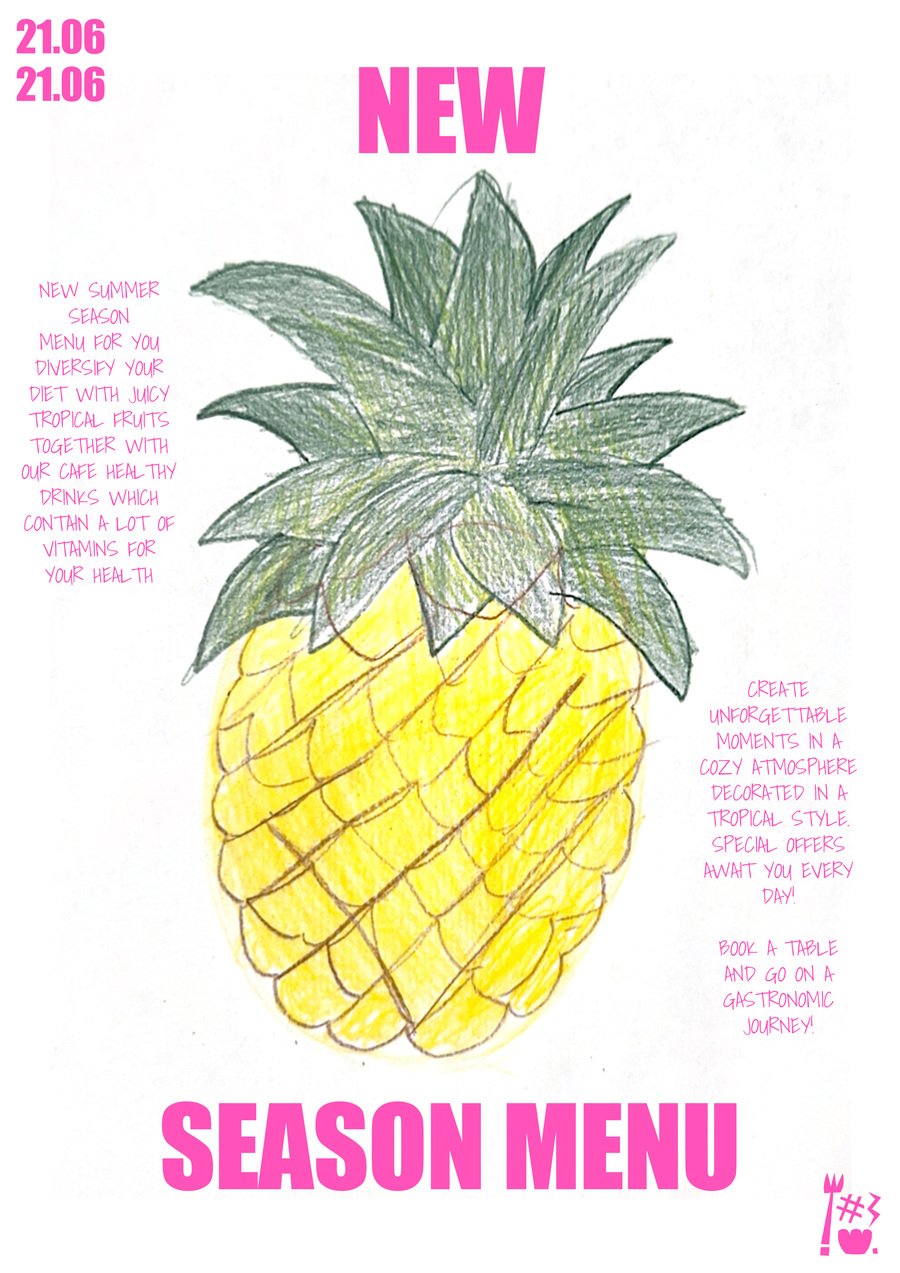 21.06
21.06
NEW
NEW SUMMER
SEASON
MENU FOR YOU
DIVERSIFY YOUR
DIET WITH JUICY
TROPICAL FRUITS
TOGETHER WITH
OUR CAFE HEALTHY
DRINKS WHICH
CONTAIN A LOT OF
VITAMINS FOR
YOUR HEALTH
CREATE
UNFORGETTABLE
MOMENTS IN A
COZY ATMOSPHERE
DECORATED IN A
TROPICAL STYLE.
SPECIAL OFFERS
AWAIT YOU EVERY
DAY!
BOOK A TABLE
AND GO ON A
GASTRONOMIC
JOURNEY!
SEASON MENU